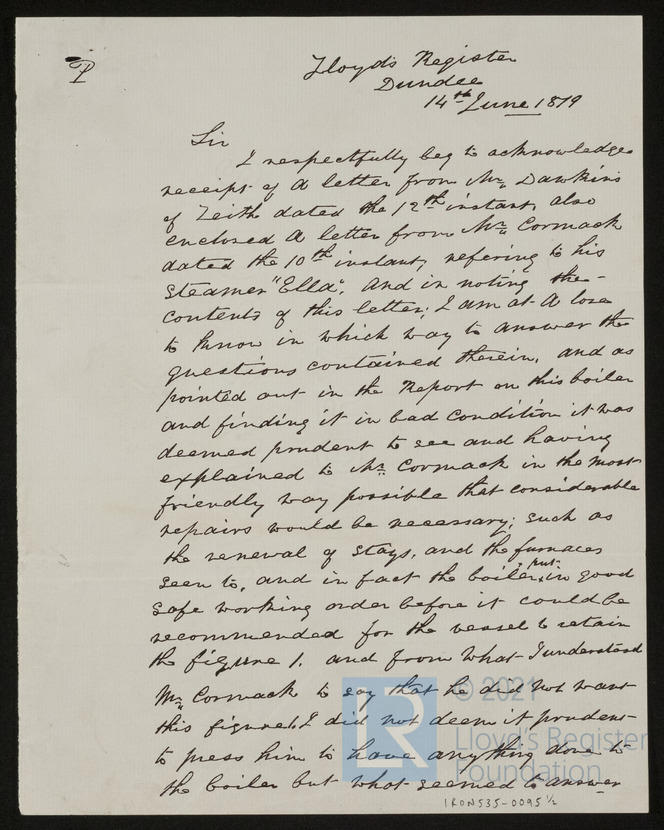 P
Lloyd's Register
Dundee
14th June 1879
Sir
I respectfully beg to acknowledge
receipt of a letter from Mr. Dawkins
of Leith dated the 12th instant, also
enclosed a letter from Mr. Cormack
dated the 10th instant, refering to his
Steamer "Ella", and in noting the
contents of this letter; I am at a loss
to know in which way to answer the
questions contained therein, and as
pointed out in the Report on this boiler
and finding it in bad condition it was
deemed prudent to see and having
explained to Mr. Cormack in the most
friendly way possible that considerable
repairs would be necessary; such as
the renewal of stays, and the furnaces
seen to, and in fact the boiler put in good
safe working order before it could be
recommended for the vessel to retain
the figure 1. and from what I understood
Mr. Cormack to say that he did not want
this figure 1. I did not deem it prudent
to press him to have anything done to
the boiler but what seemed to answer
© 2021
LR
Lloyd's Register
Foundation
IRON535-0095 1/2